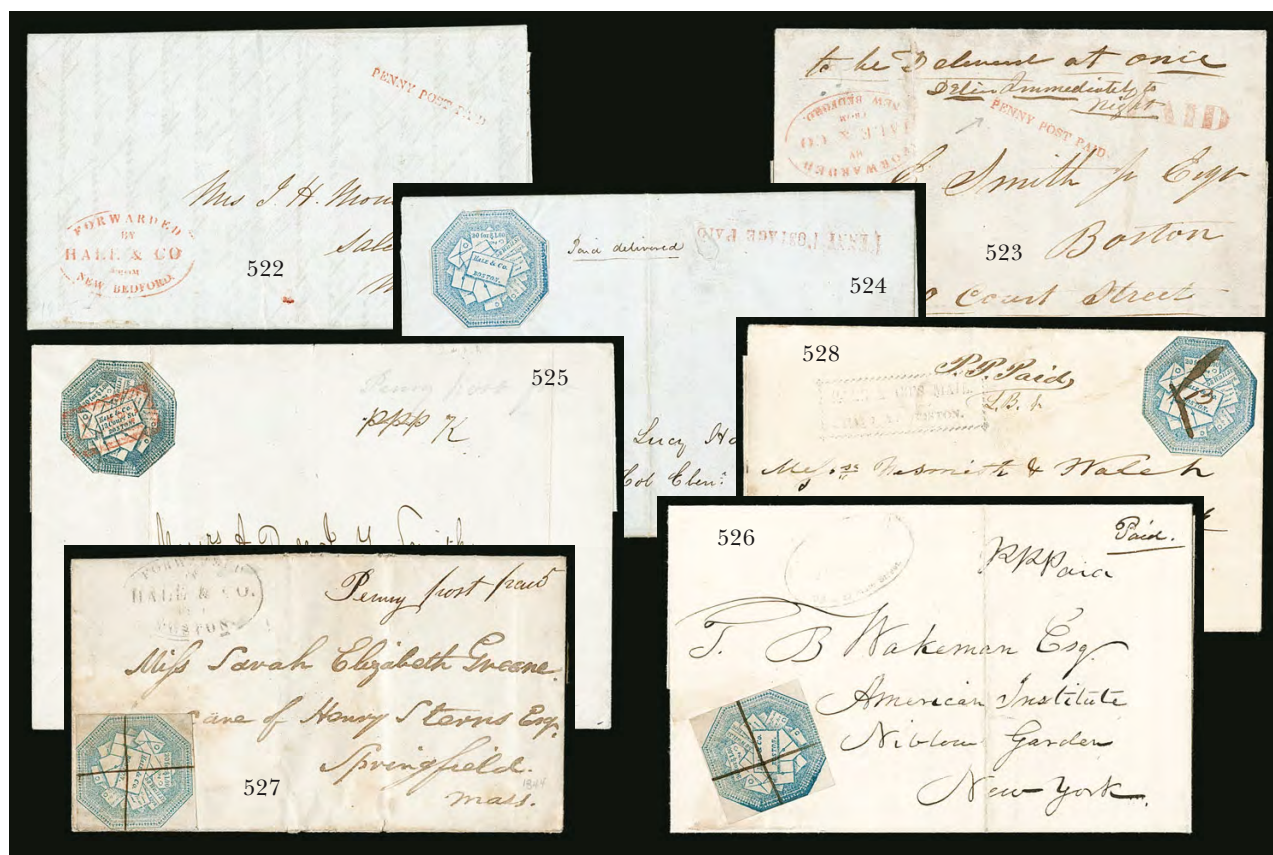 PENNY POST PAID
Mrs J. H.
FORWARDED
BY
HALE & CO
FROM
NEW BEDFORD.
522
to be Delivered at once
Deliver Immediately to
Night
PAID
PENNY POST PAID.
FORWARDED
BY
HALE & CO
FROM
NEW BEDFORD.
E. Smith Jr Esqr
Boston
Court Street
523
20 for $1.00
HALE & Co.
BOSTON.
Paid delivered
PENNY POSTAGE PAID
524
Lucy
Col Eben:
525
Penny post
PPP K
HALE & Co.
BOSTON
528
P.P. Paid
MAIL.
BOSTON.
Messrs Nesmith & Walsh
FORWARDED
BY
HALE & CO.
FROM
BOSTON
Penny post paid
Miss Sarah Elizabeth Greene.
care of Henry Sterns Esq.
Springfield.
1844
Mass.
527
526
Paid.
PPPaid
T. B Wakeman Esq.
American Institute
Niblows Garden
New York.